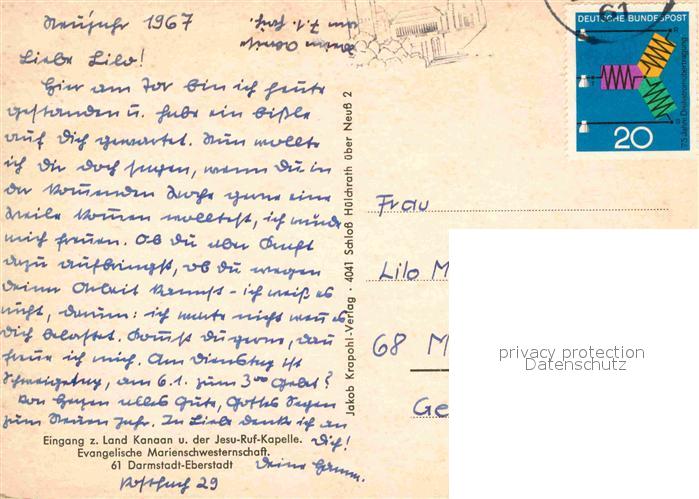 Neujahr 1967
am 7.1. früh.
Liebe Lilo!
Hier am Tor bin ich heute
gestanden u. habe ein bißle
auf Dich gewartet. Nun wollte
ich Dir doch sagen, wenn Du in
der kommenden Woche gerne eine
Weile kommen wolltest, ich würde
mich freuen. Ob Du aber Kraft
dazu aufbringst, ob Du wegen
deiner Arbeit kannst - ich weiß es
nicht, darum: ich warte nicht wenn es
Dich belastet. Kommst Du gern, dann
freue ich mich. Am Dienstag ist
Schweigetag, am 6.1. zum 3⁰⁰ Gebet?
Von Herzen alles Gute, Gottes Segen
zum Neuen Jahr. In Liebe denke ich an
Dich!
Deine
Postfach 29
Eingang z. Land Kanaan u. der Jesu-Ruf-Kapelle.
Evangelische Marienschwesternschaft.
61 Darmstadt-Eberstadt
Jakob Krapohl-Verlag · 4041 Schloß Hülchrath über Neuß 2
61
DEUTSCHE BUNDESPOST
75 Jahre Drehstromübertragung
20
Frau
Lilo M
68 M
Ge
privacy protection
Datenschutz